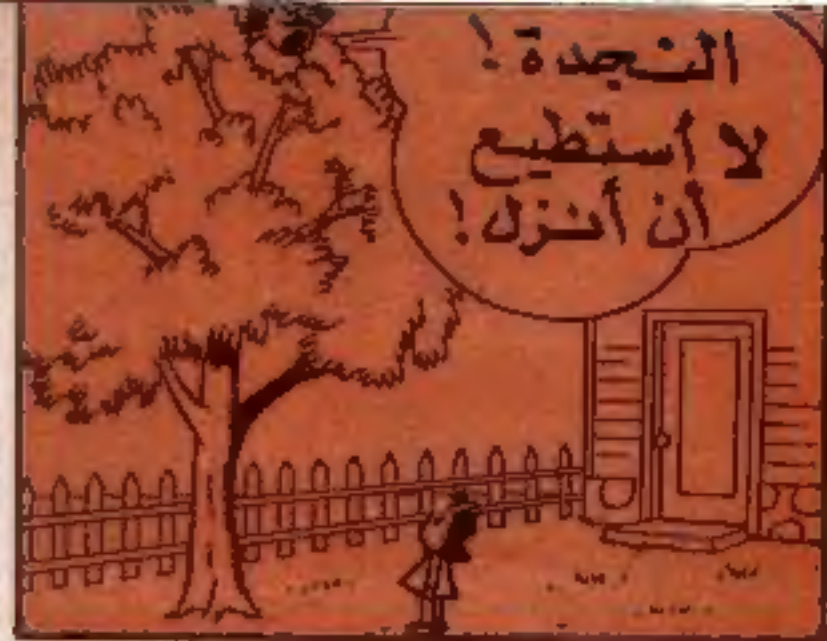 النجدة !
لا أستطيع
أن أنزل !